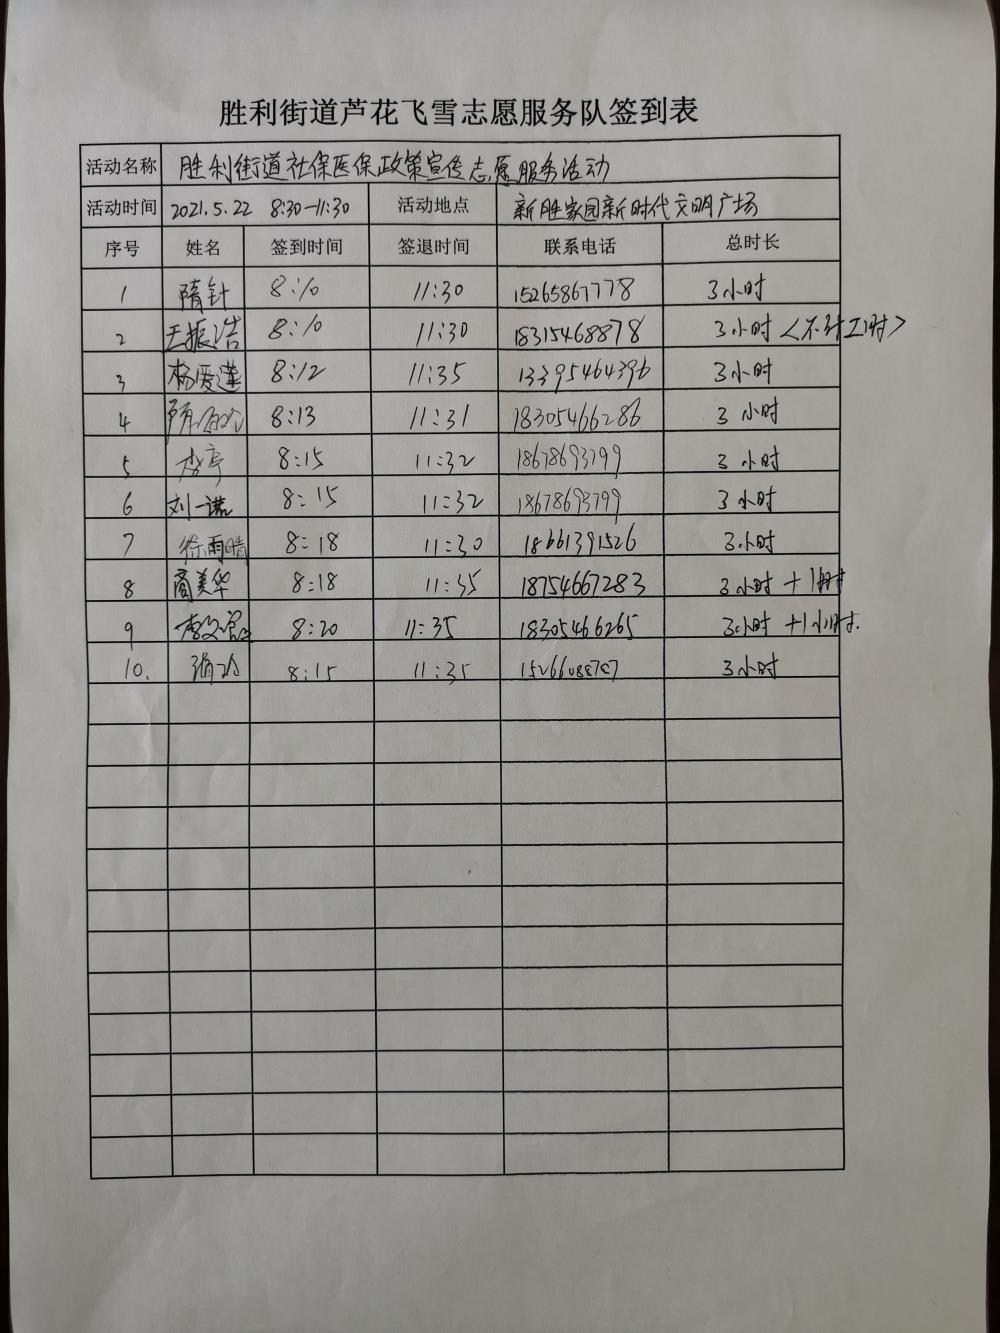 胜利街道芦花飞雪志愿服务队签到表
活动名称 胜利街道社保医保政策宣传志愿服务活动
活动时间 2021.5.22 8:30-11:30 活动地点 新胜家园新时代文明广场
序号 姓名 签到时间 签退时间 联系电话 总时长
1 隋针 8:10 11:30 15265867778 3小时
2 王振浩 8:10 11:30 18315468878 3小时<不计工时>
3 杨爱莲 8:12 11:35 13395464396 3小时
4 8:13 11:31 18305466286 3小时
5 李亭 8:15 11:32 18678693799 3小时
6 刘一诺 8:15 11:32 18678693799 3小时
7 徐雨晴 8:18 11:30 18661391526 3小时
8 商美华 8:18 11:35 18754667283 3小时+1小时
9 8:20 11:35 18305466265 3小时+1小时.
10. 8:15 11:35 15266088787 3小时